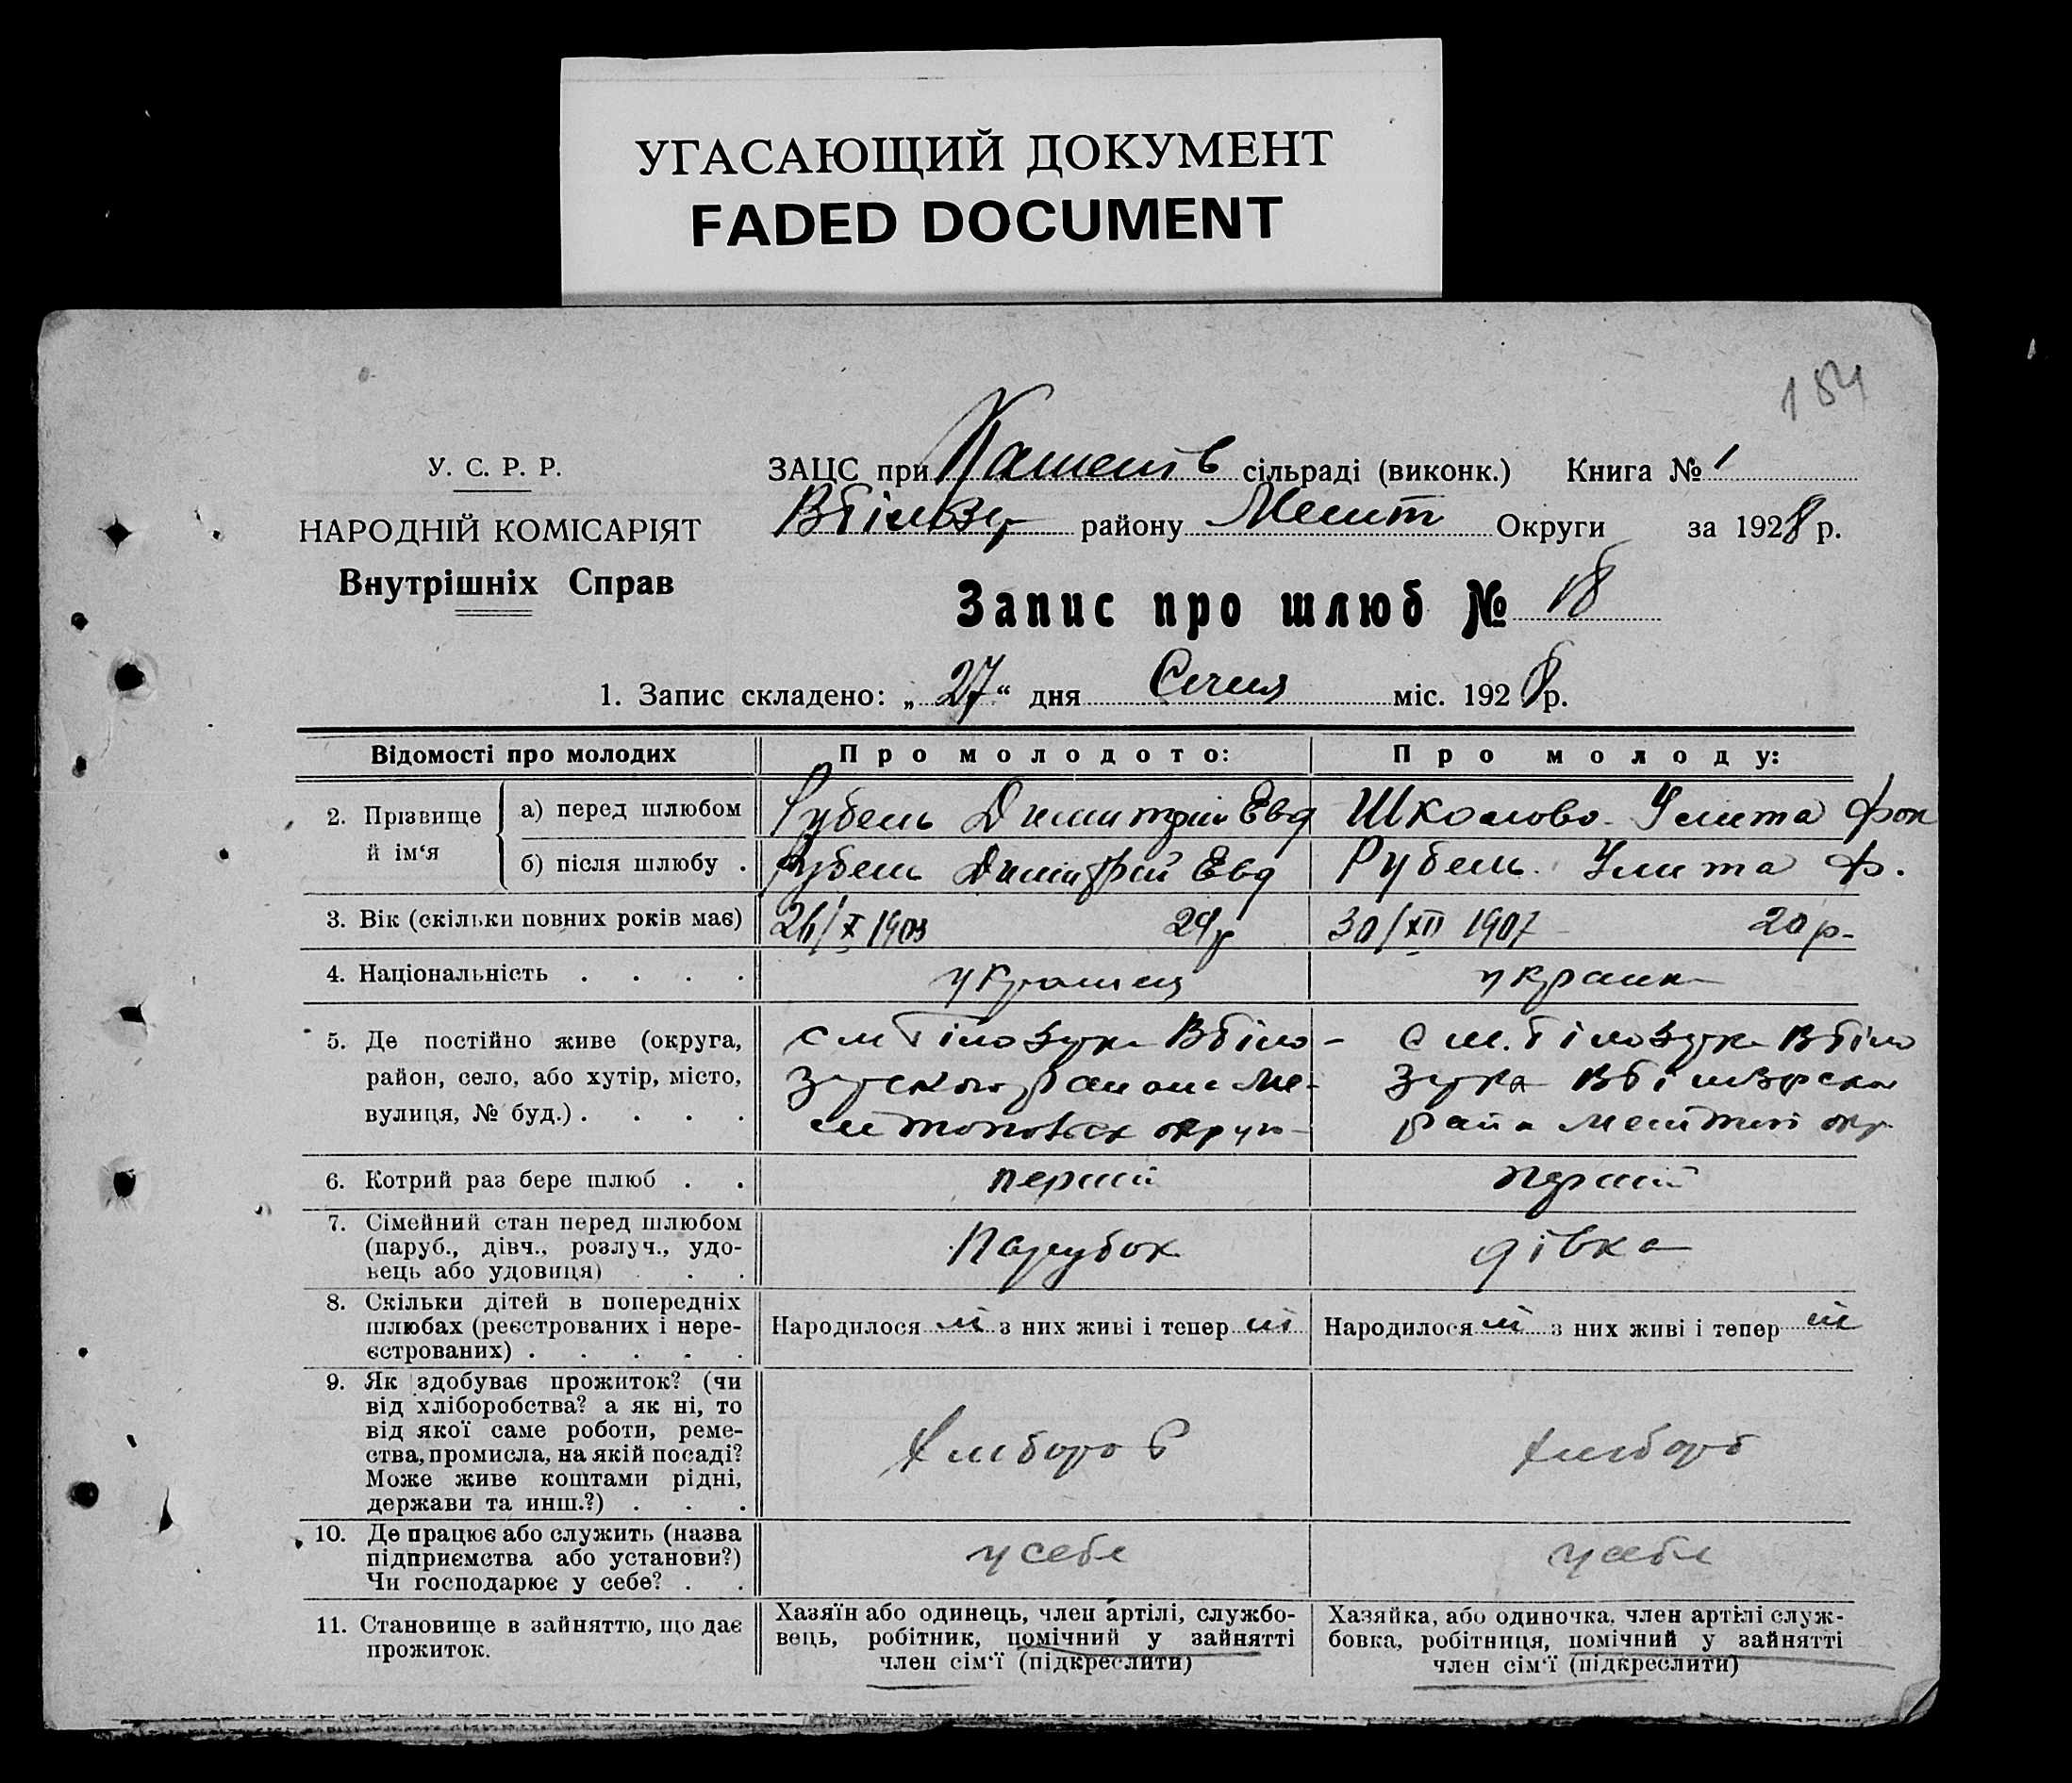 УГАСАЮЩИЙ ДОКУМЕНТ
FADED DOCUMENT
184
У. С. Р. Р.
НАРОДНІЙ КОМІСАРІЯТ
Внутрішніх Справ
ЗАЦС при сільраді (виконк.) Книга № 1
району Мелит Округи за 1928 р.
Запис про шлюб № 18
1. Запис складено: „27“ дня Січня міс. 1928 р.
Відомості про молодих
Про молодого:
Про молоду:
2. Прізвище й ім‘я
а) перед шлюбом
Рубель Димитрий Евд
Школово Улита Фок
б) після шлюбу .
Рубель Димитрий Евд
Рубель Улита Ф.
3. Вік (скільки повних років має)
26/X 1903 24р
30/XII 1907 20р-
4. Національність . . . .
українец
україн
5. Де постійно живе (округа,
район, село, або хутір, місто,
вулиця, № буд.) . . . .
см Білозурка Вбіло-
зурського района Ме-
литопольск округ
с м. Білозурка Вбіло
зурка
райа Мелитоп окр
6. Котрий раз бере шлюб . .
перший
перший
7. Сімейний стан перед шлюбом
(паруб., дівч., розлуч., удо-
вець або удовиця) . . .
Парубок
дівка
8. Скільки дітей в попередніх
шлюбах (реєстрованих і нере-
єстрованих) . . . . .
Народилося ні з них живі і тепер ні
Народилося ні з них живі і тепер ні
9. Як здобуває прожиток? (чи
від хліборобства? а як ні, то
від якої саме роботи, реме-
ства, промисла, на якій посаді?
Може живе коштами рідні,
держави та инш.?) . . .
Хлибороб
хлибороб
10. Де працює або служить (назва
підприємства або установи?)
Чи господарює у себе? . .
у себе
у себе
11. Становище в зайняттю, що дає
прожиток.
Хазяїн або одинець, член артілі, службо-
вець, робітник, помічний у зайнятті
член сім‘ї (підкреслити)
Хазяйка, або одиночка, член артілі служ-
бовка, робітниця, помічний у зайнятті
член сім‘ї (підкреслити)